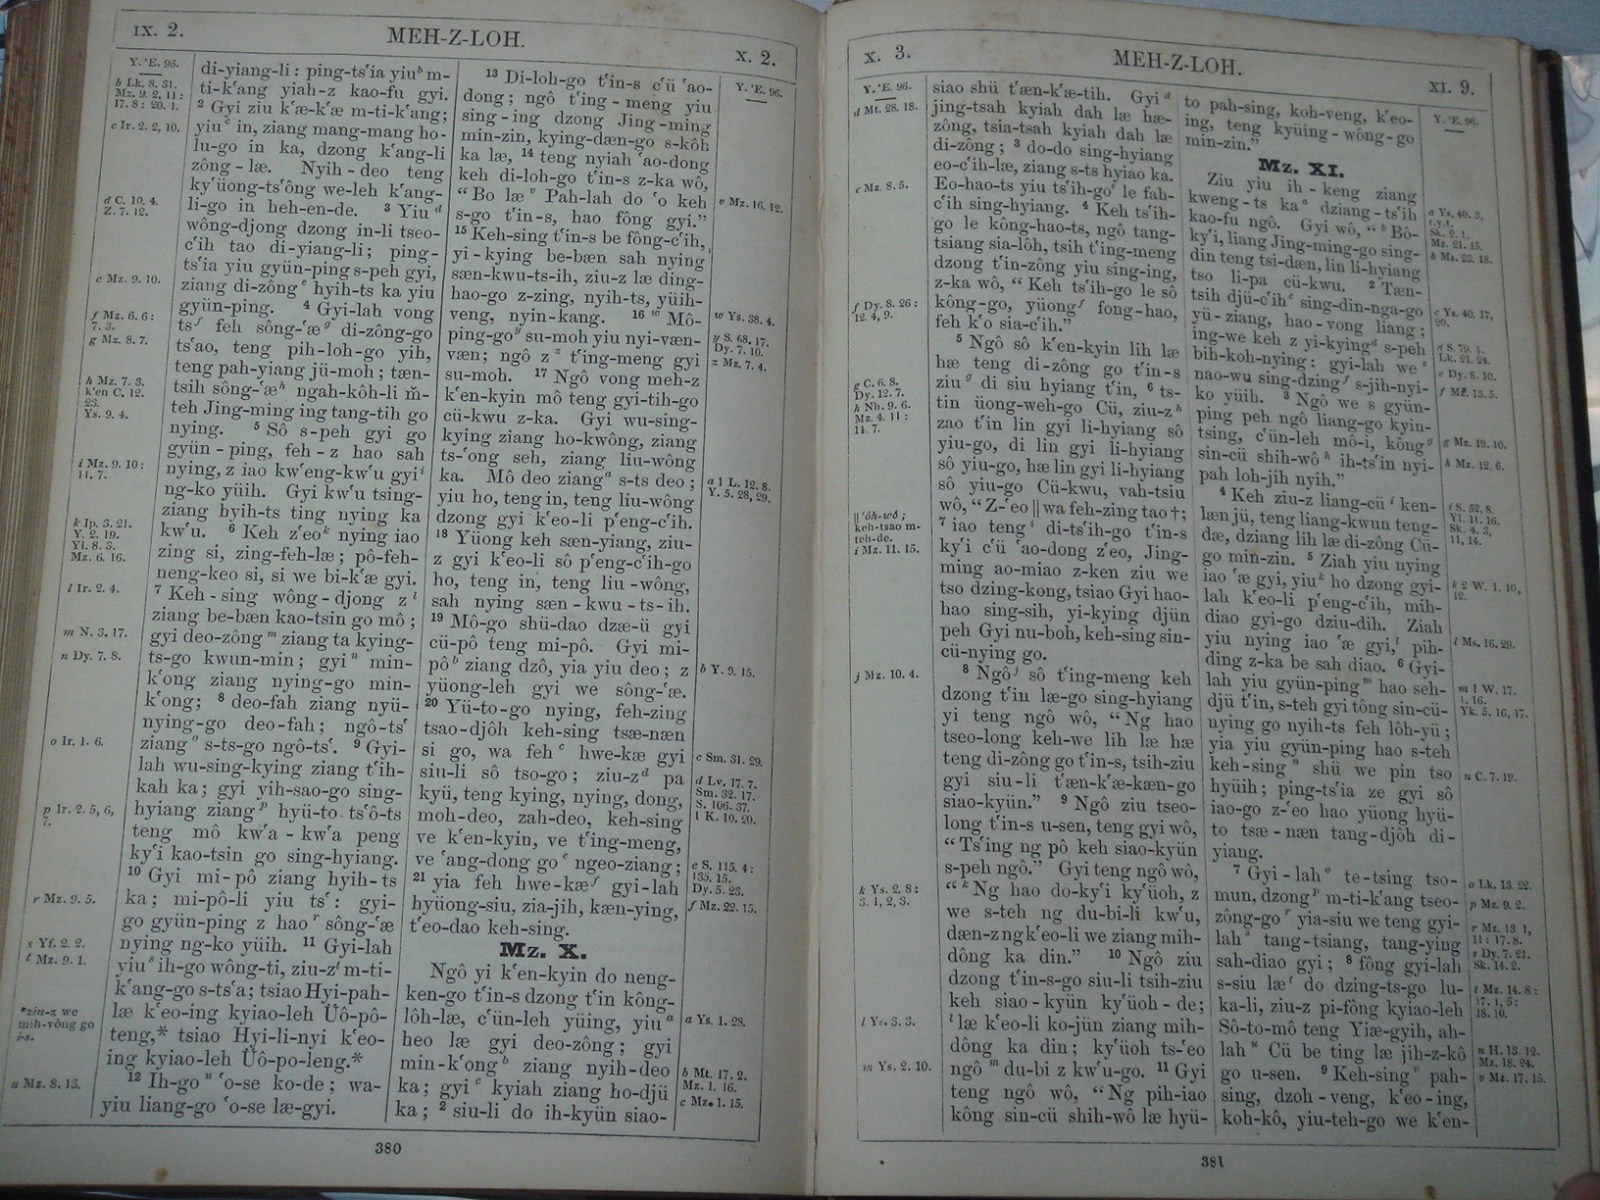 IX. 2.
MEH-Z-LOH.
X. 2.
Y. ʻE. 96.
b Lk. 8. 31.
Mz. 9. 2, 11:
17. 8: 20. 1.
c Ir. 2. 2, 10.
d C. 10. 4.
Z. 7. 12.
e Mz. 9. 10.
f Mz. 6. 6:
7. 3.
g Mz. 8. 7.
h Mz. 7. 3.
kʻen C. 12.
23.
Ys. 9. 4.
i Mz. 9. 10:
11. 7.
k Ip. 3. 21.
Y. 2. 19.
Yl. 8. 3.
Mz. 6. 16.
l Ir. 2. 4.
m N. 3. 17.
n Dy. 7. 8.
o Ir. 1. 6.
p Ir. 2. 5, 6,
7.
r Mz. 9. 5.
s Yf. 2. 2.
t Mz. 9. 1.
*ziu-z we
mih-vông go
i-s.
u Mz. 8. 13.
di-yiang-li: ping-tsʻia yiu b m-
ti-kʻang yiah-z kao-fu gyi.
2 Gyi ziu kʻæ-kʻæ m-ti-kʻang;
yiu c in, ziang mang-mang ho-
lu-go in ka, dzong kʻang-li
zông-læ. Nyih-deo teng
kyʻüong-tsʻông we-leh kʻang-
li-go in heh-en-de. 3 Yiu d
wông-djong dzong in-li tseo-
cʻih tao di-yiang-li; ping-
tsʻia yiu gyün-ping s-peh gyi,
ziang di-zông e hyih-ts ka yiu
gyün-ping. 4 Gyi-lah vong
ts f feh sông-ʻæ g di-zông-go
tsʻao, teng pih-loh-go yih,
teng pah-yiang jü-moh; tæn-
tsih sông-ʻæ h ngah-kôh-li m̆-
teh Jing-ming ing tang-tih go
nying. 5 Sô s-peh gyi go
gyün-ping, feh-z hao sah
nying, z iao kwʻeng-kwʻu gyi i
ng-ko yüih. Gyi kwʻu tsing-
ziang hyih-ts ting nying ka
kwʻu. 6 Keh zʻeo k nying iao
zing si, zing-feh-læ; pô-feh-
neng-keo si, si we bi-kʻæ gyi.
7 Keh-sing wông-djong z l
ziang be-bæn kao-tsin go mô;
gyi deo-zông m ziang ta kying-
ts-go kwun-min; gyi n min-
kʻong ziang nying-go min-
kʻong; 8 deo-fah ziang nyü-
nying-go deo-fah; ngô-tsʻ
ziang o s-ts-go ngô-tsʻ. 9 Gyi-
lah wu-sing-kying ziang tʻih-
kah ka; gyi yih-sao-go sing-
hyiang ziang p hyü-to tsʻô-ts
teng mô kwʻa-kwʻa peng
kyʻi kao-tsin go sing-hyiang.
10 Gyi mi-pô ziang hyih-ts
ka; mi-pô-li yiu tsʻ: gyi-
go gyün-ping z hao r sông-ʻæ
nying ng-ko yüih. 11 Gyi-lah
yiu s ih-go wông-ti, ziu-z t m-ti-
kʻang-go s-tsʻa; tsiao Hyi-pah-
læ kʻeo-ing kyiao-leh Üô-pô-
teng,* tsiao Hyi-li-nyi kʻeo-
ing kyiao-leh Üô-po-leng.*
12 Ih-go u ʻo-se ko-de; wa-
yiu liang-go ʻo-se læ-gyi.
13 Di-loh-go tʻin-s cʻü ʻao-
dong; ngô tʻing-meng yiu
sing-ing dzong Jing-ming
min-zin, kying-dæn-go s-kôh
ka læ, 14 teng nyiah ʻao-dong
keh di-loh-go tʻin-s z-ka wô,
“Bo læ v Pah-lah do ʻo keh
s-go tʻin-s, hao fông gyi.”
15 Keh-sing tʻin-s be fông-cʻih,
yi-kying be-bæn sah nying
sæn-kwu-ts-ih, ziu-z læ ding-
hao-go z-zing, nyih-ts, yüih-
veng, nyin-kang. 16 w Mô-
ping-go y su-moh yiu nyi-væn-
væn; ngô z z tʻing-meng gyi
su-moh. 17 Ngô vong meh-z
kʻen-kyin mô teng gyi-tih-go
cü-kwu z-ka. Gyi wu-sing-
kying ziang ho-kwông, ziang
ts-ʻong seh, ziang liu-wông
ka. Mô deo ziang a s-ts deo;
yiu ho, teng in, teng liu-wông
dzong gyi kʻeo-li pʻeng-cʻih.
18 Yüong keh sæn-yiang, ziu-
z gyi kʻeo-li sô pʻeng-cʻih-go
ho, teng in, teng liu-wông,
sah nying sæn-kwu-ts-ih.
19 Mô-go shü-dao dzæ-ü gyi
cü-pô teng mi-pô. Gyi mi-
pô b ziang dzô, yia yiu deo; z
yüong-leh gyi we sông-ʻæ.
20 Yü-to-go nying, feh-zing
tsao-djôh keh-sing tsæ-næn
si go, wa feh c hwe-kæ gyi
siu-li sô tso-go; ziu-z d pa
kyü, teng kying, nying, dong,
moh-deo, zah-deo, keh-sing
ve kʻen-kyin, ve tʻing-meng,
ve ʻang-dong go e ngeo-ziang;
21 yia feh hwe-kæ f gyi-lah
hyüong-siu, zia-jih, kæn-ying,
tʻeo-dao keh-sing.
Mz. X.
Ngô yi kʻen-kyin do neng-
ken-go tʻin-s dzong tʻin kông-
lôh-læ, cʻün-leh yüing, yiu a
heo læ gyi deo-zông; gyi
min-kʻong b ziang nyih-deo
ka; gyi c kyiah ziang ho-djü
ka; 2 siu-li do ih-kyün siao-
Y. ʻE. 96.
v Mz. 16. 12.
w Ys. 38. 4.
y S. 68. 17.
Dy. 7. 10.
z Mz. 7. 4.
a 1 L. 12. 8.
Y. 5. 28, 29.
b Y. 9. 15.
c Sm. 31. 29.
d Lv. 17. 7.
Sm. 32. 17.
S. 106. 37.
1 K. 10. 20.
e S. 115. 4:
135. 15.
Dy. 5. 23.
f Mz. 22. 15.
a Ys. 1. 28.
b Mt. 17. 2.
Mz. 1. 16.
c Mz. 1. 15.
380
X. 3.
MEH-Z-LOH.
XI. 9.
Y. ʻE. 96.
d Mt. 28. 18.
e Mz. 8. 5.
f Dy. 8. 26:
12. 4, 9.
g C. 6. 8.
Dy. 12. 7.
h Nh. 9. 6.
Mz. 4. 11:
14. 7.
|| ʻôh-wô;
keh-tsao m-
teh-de.
i Mz. 11. 15.
j Mz. 10. 4.
k Ys. 2. 8:
3. 1, 2, 3.
l Ys. 3. 3.
m Ys. 2. 10.
siao shü tʻæn-kʻæ-tih. Gyi d
jing-tsah kyiah dah læ hæ-
zông, tsia-tsah kyiah dah læ
di-zông; 3 do-do sing-hyiang
eo-cʻih-læ, ziang s-ts hyiao ka.
Eo-hao-ts yiu tsʻih-go e le fah-
cʻih sing-hyiang. 4 Keh tsʻih-
go le kông-hao-ts, ngô tang-
tsiang sia-lôh, tsih tʻing-meng
dzong tʻin-zông yiu sing-ing,
z-ka wô, “Keh tsʻih-go le sô
kông-go, yüong f fong-hao,
feh kʻo sia-cʻih.”
5 Ngô sô kʻen-kyin lih læ
hæ teng di-zông go tʻin-s
ziu g di siu hyiang tʻin, 6 ts-
tin üong-weh-go Cü, ziu-z h
zao tʻin lin gyi li-hyiang sô
yiu-go, di lin gyi li-hyiang
sô yiu-go, hæ lin gyi li-hyiang
sô yiu-go Cü-kwu, vah-tsiu
wô, “Z-ʻeo || wa feh-zing tao †;
7 iao teng i di-tsʻih-go tʻin-s
kyʻi cʻü ʻao-dong zʻeo, Jing-
ming ao-miao z-ken ziu we
tso dzing-kong, tsiao Gyi hao-
hao sing-sih, yi-kying djün
peh Gyi nu-boh, keh-sing sin-
cü-nying go.
8 Ngô j sô tʻing-meng keh
dzong tʻin læ-go sing-hyiang
yi teng ngô wô, “Ng hao
tseo-long keh-we lih læ hæ
teng di-zông go tʻin-s, tsih-ziu
gyi siu-li tʻæn-kʻæ-kæn-go
siao-kyün.” 9 Ngô ziu tseo-
long tʻin-s u-sen, teng gyi wô,
“Tsʻing ng pô keh siao-kyün
s-peh ngô.” Gyi teng ngô wô,
“ k Ng hao do-kyʻi kyʻüoh, z
we s-teh ng du-bi-li kwʻu,
dæn-z ng kʻeo-li we ziang mih-
dông ka din.” 10 Ngô ziu
dzong tʻin-s-go siu-li tsih-ziu
keh siao-kyün kyʻüoh-de;
l læ kʻeo-li ko-jün ziang mih-
dông ka din; kyʻüoh ts-ʻeo
ngô m du-bi z kwʻu-go. 11 Gyi
teng ngô wô, “Ng pih-iao
kông sin-cü shih-wô læ hyü-
to pah-sing, koh-veng, kʻeo-
ing, teng kyüing-wông-go
min-zin.”
Mz. XI.
Ziu yiu ih-keng ziang
kweng-ts ka a dziang-tsʻih
kao-fu ngô. Gyi wô, “ b Bô-
kyʻi, liang Jing-ming-go sing-
din teng tsi-dæn, lin li-hyiang
tso li-pa cü-kwu. 2 Tæn-
tsih djü-cʻih c sing-din-nga-go
yü-ziang, hao-vong liang;
ing-we keh z yi-kying d s-peh
bih-koh-nying: gyi-lah we e
nao-wu sing-dzing f s-jih-nyi-
ko yüih. 3 Ngô we s gyün-
ping peh ngô liang-go kyin-
tsing, cʻün-leh mô-i, kông g
sin-cü shih-wô h ih-tsʻin nyi-
pah loh-jih nyih.”
4 Keh ziu-z liang-cü i ken-
læn jü, teng liang-kwun teng-
dæ, dziang lih læ di-zông Cü-
go min-zin. 5 Ziah yiu nying
iao ʻæ gyi, yiu k ho dzong gyi-
lah kʻeo-li pʻeng-cʻih, mih-
diao gyi-go dziu-dih. Ziah
yiu nying iao ʻæ gyi, l pih-
ding z-ka be sah diao. 6 Gyi-
lah yiu gyün-ping m hao seh-
djü tʻin, s-teh gyi tông sin-cü-
nying go nyih-ts feh lôh-yü;
yia yiu gyün-ping hao s-teh
keh-sing n shü we pin tso
hyüih; ping-tsʻia ze gyi sô
iao-go z-ʻeo hao yüong hyü-
to tsæ-næn tang-djôh di-
yiang.
7 Gyi-lah o te-tsing tso-
mun, dzong p m-ti-kʻang tseo-
zông-go r yia-siu we teng gyi-
lah s tang-tsiang, tang-ying
sah-diao gyi; 8 fông gyi-lah
s-siu læ t do dzing-ts-go lu-
ka-li, ziu-z pi-fông kyiao-leh
Sô-to-mô teng Yiæ-gyih, ah-
lah u Cü be ting læ jih-z-kô
go u-sen. 9 Keh-sing v pah-
sing, dzoh-veng, kʻeo-ing,
koh-kô, yiu-teh-go we kʻen-
Y. ʻE. 96.
a Ys. 40. 3,
t.y.t.
Sk. 2. 1.
Mz. 21. 15.
b Ms. 23. 18.
c Ys. 40. 17,
20.
d S. 79. 1.
Lk. 21. 24.
e Dy. 8. 10.
f Mz. 13. 5.
g Mz. 19. 10.
h Mz. 12. 6.
i S. 52. 8.
Yl. 11. 16.
Sk. 4. 3,
11, 14.
k 2 W. 1. 10,
12.
l Ms. 16. 29.
m 1 W. 17.
1. 16.
Yk. 5. 16, 17.
n C. 7. 19.
o Lk. 13. 22.
p Mz. 9. 2.
r Mz. 13 1,
11: 17. 8.
s Dy. 7. 21.
Sk. 14. 2.
t Mz. 14. 8:
17. 1, 5:
18. 10.
u H. 13. 12.
Mz. 18. 24.
v Mz. 17. 15.
381